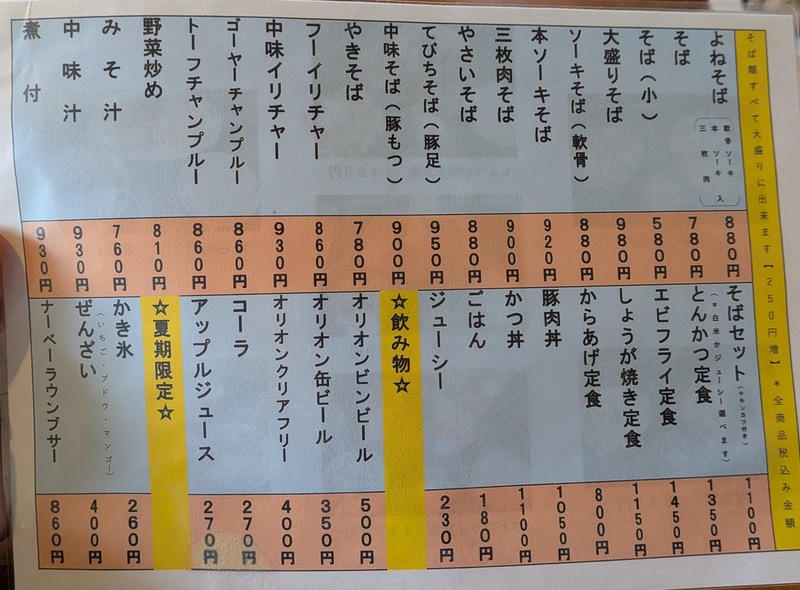 そば類すべて大盛りに出来ます【250円増】＊全商品税込み金額
よねそば
(軟骨ソーキ
本ソーキ
三枚肉 入)
880円
そば 780円
そば(小) 580円
大盛りそば 980円
ソーキそば(軟骨) 880円
本ソーキそば 920円
三枚肉そば 900円
やさいそば 880円
てびちそば(豚足) 950円
中味そば(豚もつ) 900円
やきそば 780円
フーイリチャー 860円
中味イリチャー 930円
ゴーヤーチャンプルー 860円
トーフチャンプルー 860円
野菜炒め 810円
みそ汁 760円
中味汁 930円
煮付 930円
そばセット(チキンカツ付き) 1100円
(＊白米かジューシー選べます)
とんかつ定食 1350円
エビフライ定食 1450円
しょうが焼き定食 1150円
からあげ定食 800円
豚肉丼 1050円
かつ丼 1100円
ごはん 180円
ジューシー 230円
☆飲み物☆
オリオンビンビール 500円
オリオン缶ビール 350円
オリオンクリアフリー 400円
コーラ 270円
アップルジュース 270円
☆夏期限定☆
かき氷 260円
(いちご・ブドウ・マンゴー)
ぜんざい 400円
ナーベーラウンブサー 860円